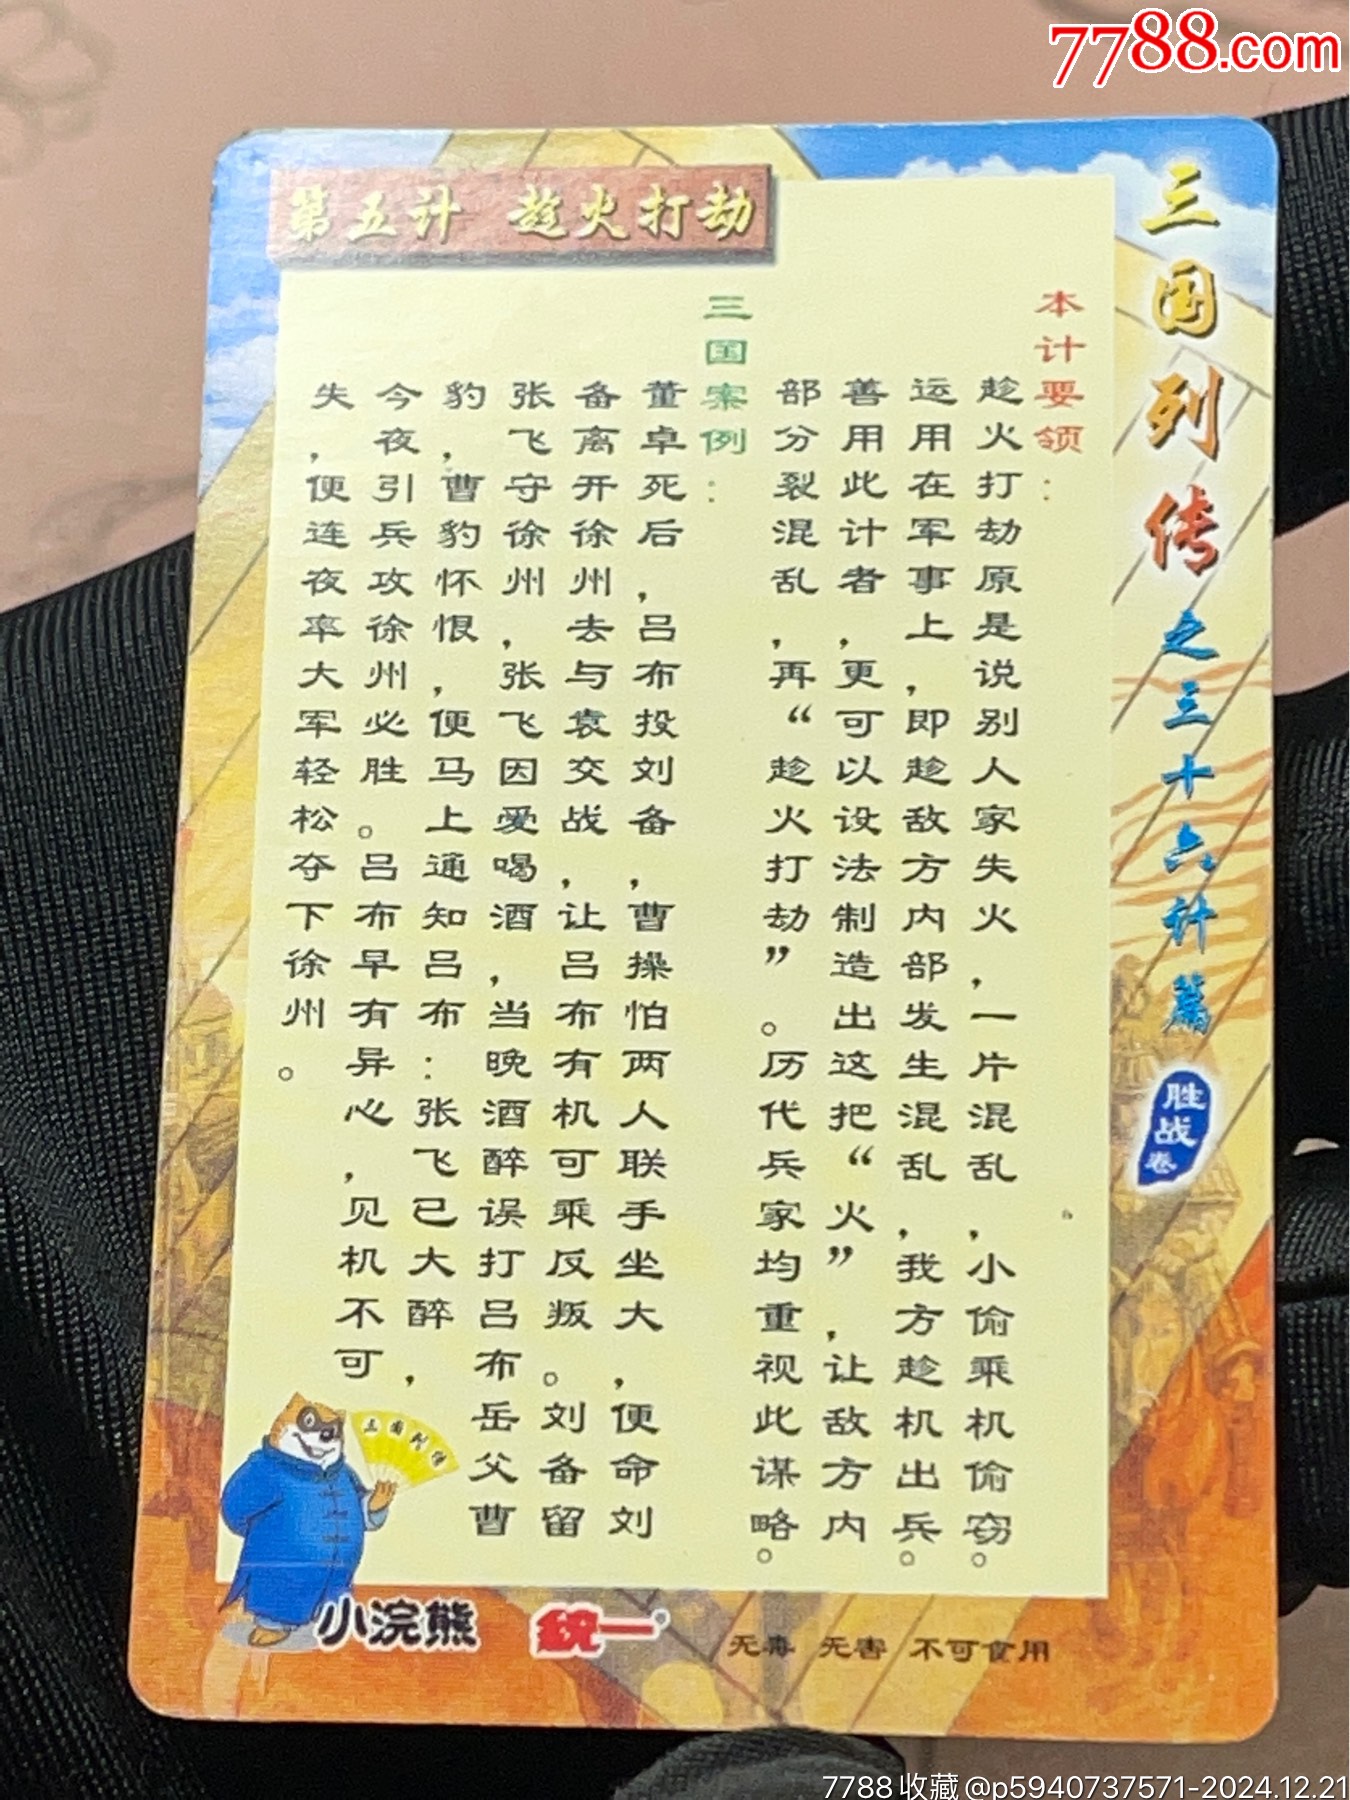 7788.com
三国列传之三十六计篇
胜战卷
第五计 趁火打劫
本计要领：
趁火打劫原是说别人家失火，一片混乱，小偷乘机偷窃。
运用在军事上，即趁敌方内部发生混乱，我方趁机出兵。
善用此计者，更可以设法制造出这把“火”，让敌方内
部分裂混乱，再“趁火打劫”。历代兵家均重视此谋略。
三国案例：
董卓死后，吕布投刘备，曹操怕两人联手坐大，便命刘
备离开徐州，去与袁交战，让吕布有机可乘反叛。刘备留
张飞守徐州，张飞因爱喝酒，当晚酒醉误打吕布岳父曹
豹，曹豹怀恨，便马上通知吕布：张飞已大醉，
今夜引兵攻徐州必胜。吕布早有异心，见机不可
失，便连夜率大军轻松夺下徐州。
三国列传
小浣熊 統一
无毒 无害 不可食用
7788收藏@p5940737571-2024.12.21